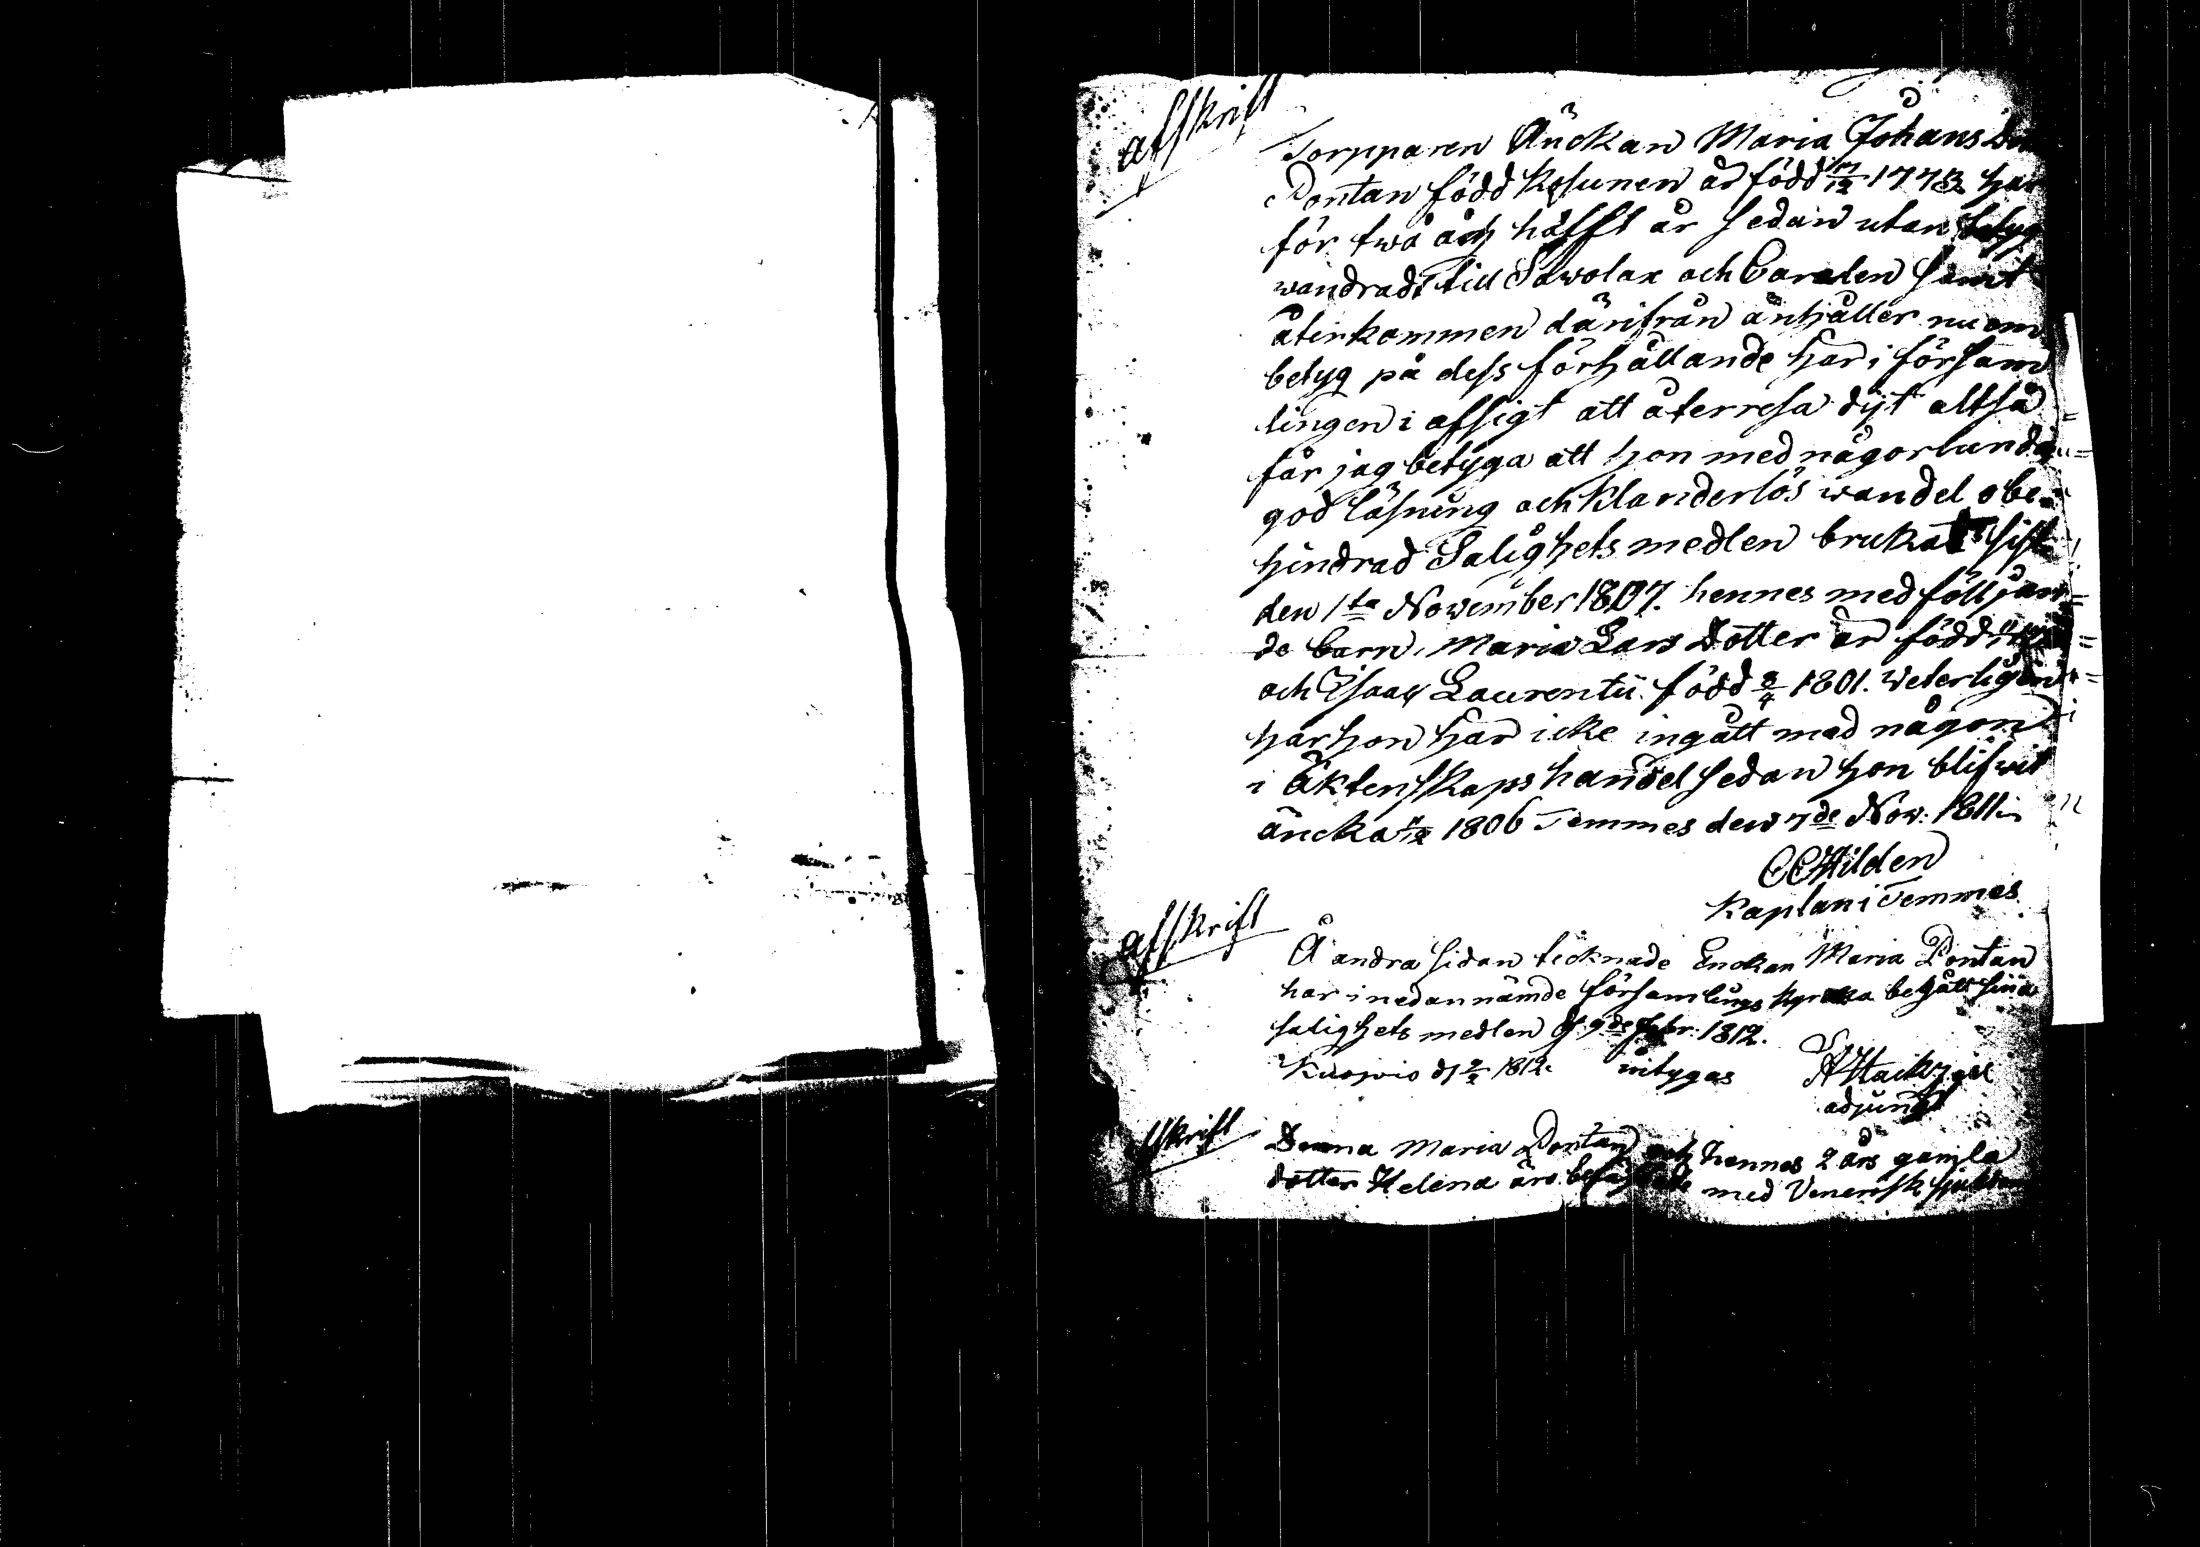 afskrift
Torpparen Änckan Maria Johans
Pontan född Kosunen är född 17/12 1773 har
för twå och halfft år sedan utan betyg
wandradt till Sawolax och Carelen samt
återkommen därifrån anhåller nu om
betyg på dess förhållande här i församl
lingen i afsigt att återresa dijt altså
får jag betyga att hon med någorlunda
god läsning och klanderlös wandel obe-
hindrad Salighets medlen brukat sist
den 1ta November 1807. hennes medföljan-
de barn, Maria Lars dotter är född
och Isaac Laurentii född 3/4 1801. Weterligen
har hon här icke ingått med någon
i Äktenskaps handel sedan hon blifwit
äncka 1806 Temmes den 7de Now. 1811
Hilden
Kaplan i Temmes
afskrift
Å andra sidan tecknade Enckan Maria Pontan
har i nedannämde församlings kyrcka begått sina
salighets medlen d. 9de Febr. 1812.
Kuopio d 9/2 1812. intygas
adjunct
afskrift
Denna Maria Pontan och hennes 2 års gamla
dotter Helena äro med Venerisk sjukdom